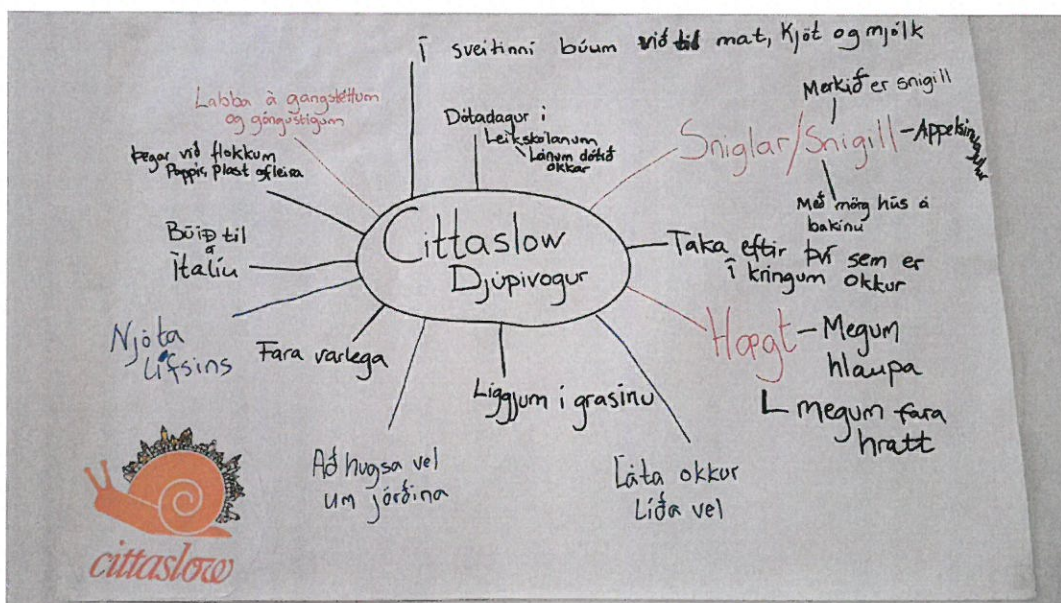 Í sveitinni búum við til mat, Kjöt og mjólk
Labba á gangstéttum
og göngustígum
Dótadagur í
Leikskólanum
Lánum dótið
okkar
Merkið er snigill
Sniglar/Snigill
Appelsínugulur
Með mörg hús á
bakinu
þegar við flokkum
Pappír, plast ofleira
Búið til
á
Ítalíu
Cittaslow
Djúpivogur
Taka eftir því sem er
í kringum okkur
Njóta
Lífsins
Fara varlega
Liggjum í grasinu
Hægt
Megum
hlaupa
megum fara
hratt
Að hugsa vel
um jörðina
Láta okkur
Líða vel
cittaslow